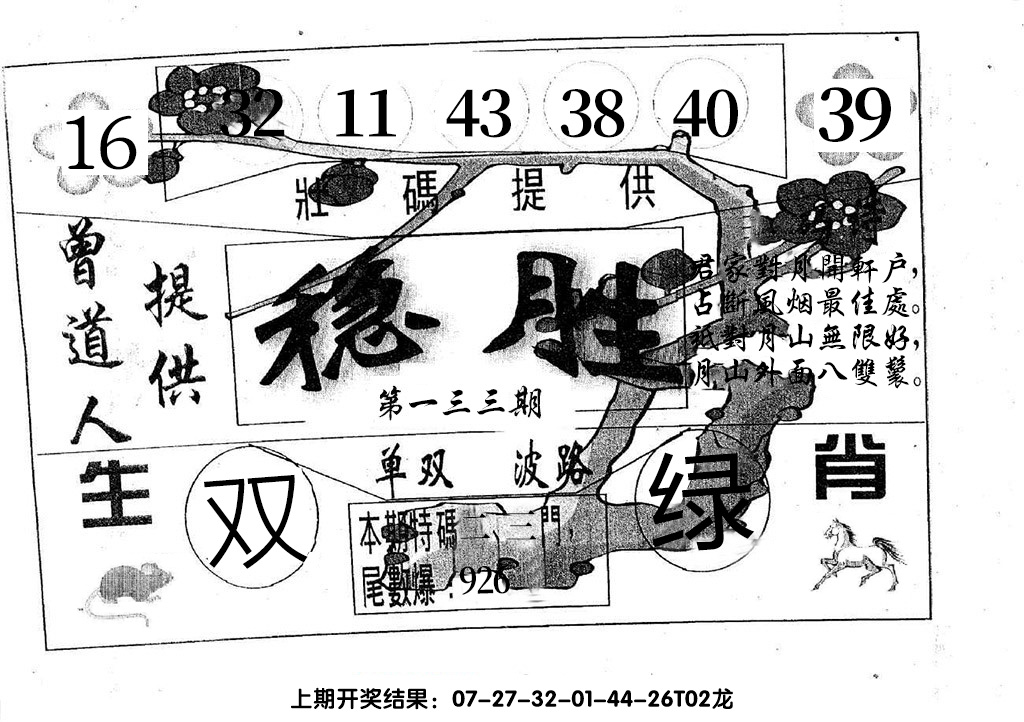 16 32 11 43 38 40 39
壯碼提供
曾道人
提供
稳胜
第一三三期
特
君家對月開軒户，
占斷風烟最佳處。
祗對月山無限好，
月山外面八雙鬟。
生肖
双
单双 波路
绿
本期特碼二、三門，
尾數爆：926
上期开奖结果：07-27-32-01-44-26T02龙